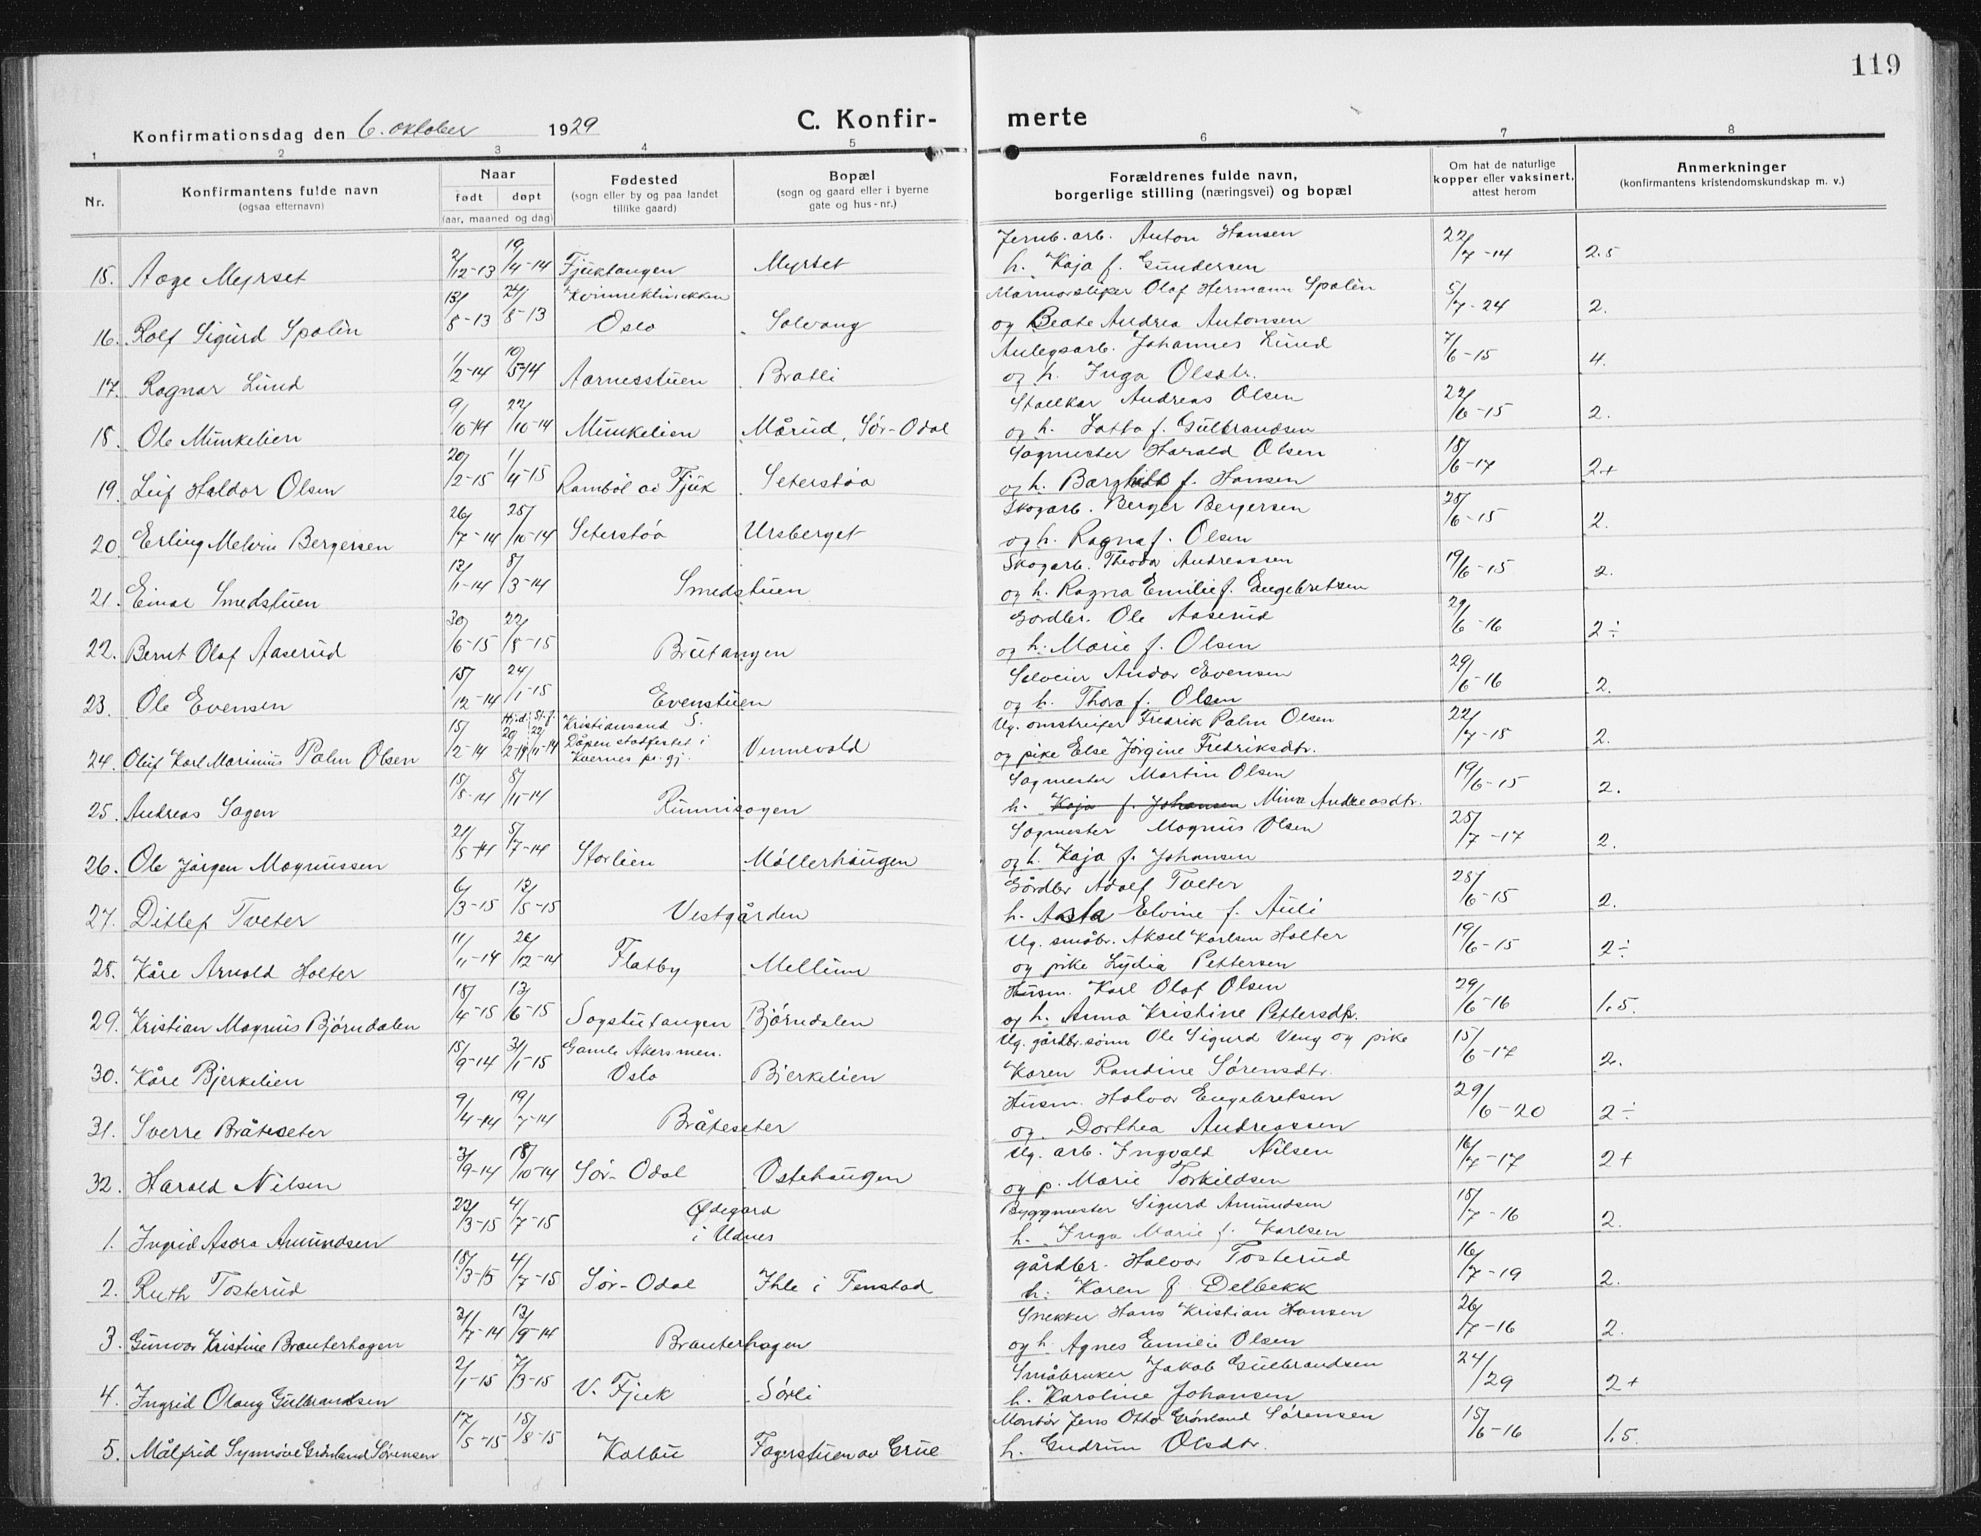 119
Konfirmationsdag den 6. oktober 1929
C. Konfirmerte
1 2 3 4 5 6 7 8
Nr.
Konfirmantens fulde navn
(ogsaa efternavn)
Naar
født døpt
(aar, maaned og dag)
Fødested
(sogn eller by og paa landet
tillike gaard)
Bopæl
(sogn og gaard eller i byerne
gate og hus-nr.)
Forældrenes fulde navn,
borgerlige stilling (næringsvei) og bopæl
Om hat de naturlige
kopper eller vaksinert,
attest herom
Anmerkninger
(konfirmantens kristendomskundskap m. v.)
15. Aage Myrset 2/12-13 19/4-14 Fjuktangen Myrset Jernb. arb. Anton Hansen 22/7-14 2.5
h. Kaja f. Gundersen
16. Rolf Sigurd Spolén 13/8-13 24/8-13 Kvinneklinikken Oslo Solvang Marmorsliper Olaf Hermann Spolén 5/7-24 2.
og Beate Andrea Antonsen
17. Ragnar Lund 1/2-14 10/5-14 Aarnesstuen Bratli Anlegsarb. Johannes Lund 7/6-15 4.
og h. Inga Olsdtr.
18. Ole Munkelien 9/10-14 22/10-14 Munkelien Mårud, Sør-Odal Stallkar Andreas Olsen 22/6-15 2.
og h. Lotta f. Gulbrandsen
19. Leif Haldor Olsen 20/2-15 1/4-15 Rambøl av Fjuk Seterstøa Sagmester Harald Olsen 18/6-17 2+
og h. Borghild f. Hansen
20 Erling Melvin Bergersen 26/7-14 25/10-14 Seterstøa Ursberget Skogarb. Berger Bergersen 28/6-15 2.
og h. Ragna f. Olsen
21. Einar Smedstuen 12/1-14 8/3-14 Smedstuen Skogarb. Theodor Andreassen 19/6-15 2.
og h. Ragna Emilie f. Engebretsen
22. Bernt Olaf Aaserud 30/6-15 22/8-15 Brutangen Gardbr. Ole Aaserud 29/6-16 2÷
og h. Marie f. Olsen
23. Ole Evensen 15/12-14 24/1-15 Evenstuen Selveier Andor Evensen 29/6-16 2.
og h. Thora f. Olsen
24. Oluf Karl Marinius Palm Olsen 15/2-14 Kristiansand S. Dåpen stadfestet i Kvernes pr. gj. Vennevold Ug. omstreifer Fredrik Palm Olsen 22/7-18 2.
og pike Else Jørgine Fredriksdtr.
25. Andreas Sagen 15/8-14 8/11-14 Runnisagen Sagmester Martin Olsen 19/6-15 2.
h. Kaja f. Johansen Mina Andreasdtr.
26. Ole Jørgen Magnussen 21/5-14 5/7-14 Storlien Møllerhaugen Sagmester Magnus Olsen 25/7-17 2.
og h. Kaja f. Johansen
27. Ditlef Tveter 6/3-15 13/5-15 Vestgården Gårdbr Adolf Tveter 28/6-15 2.
h. Aasta Elvine f. Auli
28. Kåre Arnold Holter 11/11-14 26/12-14 Flatby Mellum Ug. småbr. Aksel Karlsen Holter 19/6-15 2÷
og pike Lydia Pettersen
29. Kristian Magnus Bjørndalen 18/4-15 13/6-15 Sagstutangen Bjørndalen Husm. Karl Olaf Olsen 29/6-16 1,5.
og h. Anna Kristine Pettersdtr.
30. Kåre Bjerkelien 15/9-14 31/1-15 Gamle Akers men. Oslo Bjerkelien Ug. gårdbr.sønn Ole Sigurd Veng og pike 15/6-17 2.
Karen Randine Sørensdtr.
31. Sverre Bråteseter 9/4-14 19/7-14 Bråteseter Husm. Halvor Engebretsen 29/6-20 2÷
og Dorthea Andreassen
32. Harald Nilsen 3/9-14 18/10-14 Sør-Odal Ostehaugen Ug. arb. Ingvald Nilsen 16/7-17 2+
og p. Marie Torkildsen
1. Ingrid Asora Amundsen 22/3-15 4/7-15 Ødegard i Udnes Byggmester Sigurd Amundsen 15/7-16 2.
h. Inga Marie f. Karlsen
2. Ruth Tosterud 18/3-15 4/7-15 Sør-Odal Ihle i Fenstad gårdbr. Halvor Tosterud 16/7-19 2.
h: Karen f. Delbekk
3. Gunvor Kristine Brauterhagen 31/7-14 13/9-14 Brauterhagen Snekker Hans Kristian Hansen 26/7-16 2.
og h. Agnes Emilie Olsen
4. Ingrid Olaug Gulbrandsen 2/1-15 7/3-15 V. Fjuk Sørli Småbruker Jakob Gulbrandsen 24/29 2+
h. Karoline Johansen
5. Målfrid Synnøve Grønland Sørensen 17/5-15 15/8-15 Kalbu Fagerstuen av Grue Montør Jens Otto Grønland Sørensen 15/6-16 1,5.
h. Gudrun Olsdtr.